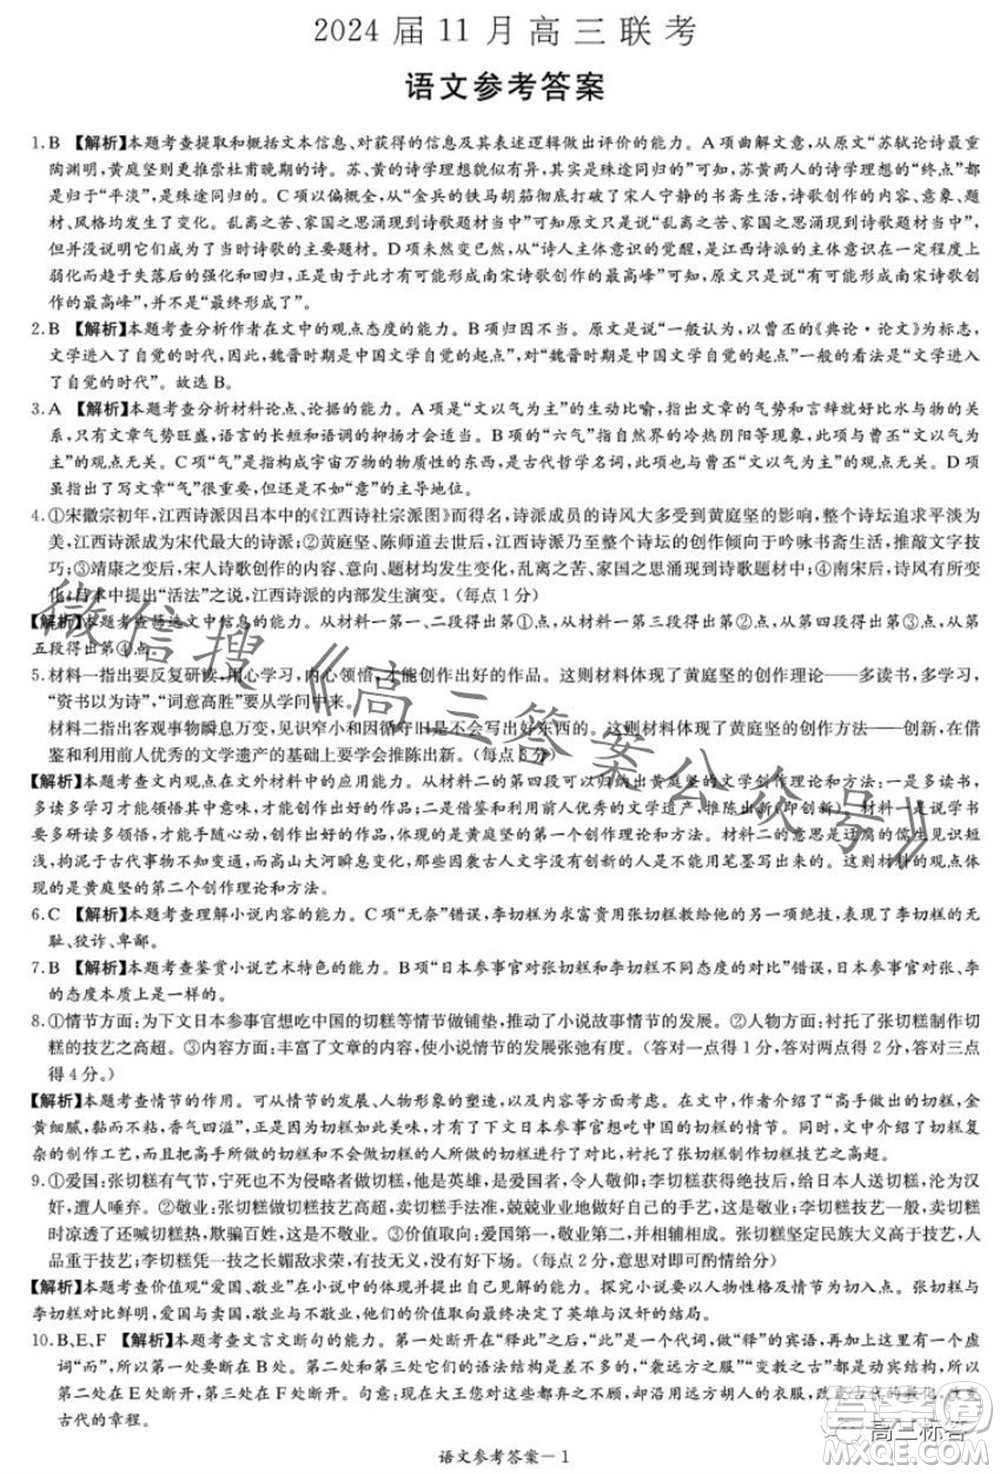 2024届11月高三联考
语文参考答案
1.B 【解析】本题考查提取和概括文本信息、对获得的信息及其表述逻辑做出评价的能力。A项曲解文意，从原文“苏轼论诗最重
陶渊明，黄庭坚则更推崇杜甫晚期的诗。苏、黄的诗学理想有异，实是殊途同归的”可知，苏黄两人的诗学理想的“终点”都
是归于“平淡”，是殊途同归的。C项以偏概全，从“金兵的铁马胡笳彻底打破了宋人宁静的书斋生活，诗歌创作的内容、意象、题
材、风格均发生了变化。乱离之苦、家国之思涌现到诗歌题材当中”可知原文只是说“乱离之苦、家国之思涌现到诗歌题材当中”，
但并没有说成为当时诗歌的主要题材。D项未然变已然，从“诗人主体意识的觉醒，是江西诗派的主体意识在一定程度上
弱化而趋于失落后的强化和回归，正是因为这样，才有可能形成南宋诗歌创作的最高峰”可知，原文只是说“有可能形成南宋诗歌创
作的最高峰”，并不是“最终形成了”。
2.B 【解析】本题考查分析作者在文中的观点态度的能力。B项归因不当。原文是说“一般认为，以曹丕的《典论·论文》为标志，
文学进入了自觉的时代，因此，魏晋时期是中国文学自觉的起点”，即“魏晋时期是中国文学自觉的起点”一般的看法是“文学进入
了自觉的时代”。故选B。
3.A 【解析】本题考查分析材料论点、论据的能力。A项是“文以气为主”的生动比喻，指出文章的气势和言辞就好比水与物的关
系，只有文章气势旺盛，语言的长短和语调的抑扬才会适当。B项的“六气”指自然界的冷热阴阳等现象，此与曹丕“文以气为
主”的观点无关。C项“气”是指构成宇宙万物的物质性的东西，是古代哲学名词，此与曹丕“文以气为主”的观点无关。D项
虽指出了写文章“气”很重要，但还是不如“意”的主导地位。
4.①宋徽宗初年，江西诗派因吕本中的《江西诗社宗派图》而得名，诗派成员的诗风大多受到黄庭坚的影响，整个诗坛追求平淡为
美，江西诗派成为宋代最大的诗派；②黄庭坚、陈师道去世后，江西诗派乃至整个诗坛的创作倾向于吟咏书斋生活，推敲文字技
巧；③靖康之变后，宋人诗歌创作的内容、意向、题材均发生变化，乱离之苦、家国之思涌现到诗歌题材中；④南宋后，诗风有变
化，吕本中提出“活法”之说，江西诗派的内部发生演变。（每点1分）
【解析】本题考查筛选文中信息的能力。从材料一第一、二段得出第①点，从材料一第三段得出第②点，从第四段得出第③点，从第
五段得出第④点。
5.材料一指出要反复研读，用心学习，内心领悟，才能创作出好的作品。这则材料体现了黄庭坚的创作理论——多读书，多学习，
“资书以为诗”，“词意高胜”要从学问中来。
材料二指出客观事物瞬息万变，见识窄小和因循守旧是不会写出好东西的。这则材料体现了黄庭坚的创作方法——创新，在借
鉴和利用前人优秀的文学遗产的基础上要学会推陈出新。（每点3分）
【解析】本题考查文内观点在文外材料中的应用能力。从材料二的第四段可以归纳出黄庭坚的文学创作理论和方法：一是多读书，
多读多学习才能领悟其中意味，才能创作出好的作品；二是借鉴和利用前人优秀的文学遗产，推陈出新（即创新）。材料一是说学书
要多研读多领悟，才能手随心动，创作出好的作品，体现的是黄庭坚的第一个创作理论和方法。材料二的意思是迂腐的儒生见识短
浅，拘于古代事物不知变通，而高山大河瞬息变化，因此因袭古人文字没有创新的人是不能用笔墨写出来的。这则材料的观点体
现的是黄庭坚的第二个创作理论和方法。
6.C 【解析】本题考查理解小说内容的能力。C项“无奈”错误，李切糕为求富贵用张切糕教给他的另一项绝技，突出了李切糕的无
耻、狡诈、卑鄙。
7.B 【解析】本题考查鉴赏小说艺术特色的能力。B项“日本参事官对张切糕和李切糕不同态度的对比”错误，日本参事官对张、李
的态度本质上是一样的。
8.①情节方面：为下文日本参事官想吃中国的切糕等情节做铺垫，推动了小说故事情节的发展。②人物方面：衬托了张切糕制作切
糕的技艺之高超。③内容方面：丰富了文章的内容，使小说情节的发展张弛有度。（答对一点得1分，答对两点得2分，答对三点
得4分。）
【解析】本题考查情节的作用。可以从情节的发展、人物形象的塑造，以及内容等方面考虑。在文中，作者写了“高手做出的切糕，金
黄细腻，黏而不粘，香气四溢”，正是因为切糕如此美味，才有了下文日本参事官想吃中国的切糕的情节。同时，文中介绍了切糕复
杂的制作工艺，而且高手做的切糕和不会做的人做的切糕完全不一样，衬托了张切糕做切糕的技艺之高超。
9.①爱国：张切糕有气节，宁死也不为侵略者做切糕，他是英雄，是爱国者，令人敬仰；李切糕为了荣华富贵投敌，给日本人送切糕，沦为汉
奸，遭人唾弃。②敬业：张切糕做切糕技艺高超，卖切糕手法准，兢兢业业地做好自己的手艺，这是敬业；李切糕卖切糕有时
时凉透了还喊切糕热，欺骗百姓，这是不敬业。③价值取向：爱国第一，敬业第二，并相辅相成。张切糕坚定民族大义高于技艺，人
品高贵；李切糕凭一技之长媚敌求荣，有技无义，没有好下场。（每点2分，有创意、有思想可酌情给分）
【解析】本题考查价值观“爱国、敬业”在小说中的体现并提出自己见解的能力。探究小说主题要以人物性格及情节为切入点。张切糕与
李切糕对比鲜明，爱国与卖国、敬业与不敬业，他们的价值取向最终决定了英雄与汉奸的结局。
10.B、E、F 【解析】本题考查文言文断句的能力。第一处断开在“释此”之后，“此”是一个代词，做“释”的宾语，后面又有一个虚
词“而”，所以第一处要断在B处。第二处和第三处断开处，它们的语法结构是一样的，“袭远方之服”“变教之古”都是动宾结构。第
二处在E处断开，第三处在F处断开。句意：现在大王您对这些弃之不顾，而却去袭用远方人的衣服，改变古代的教化，改变
古代的章程。
语文参考答案－1
微信搜《高三答案公众号》
高三标答